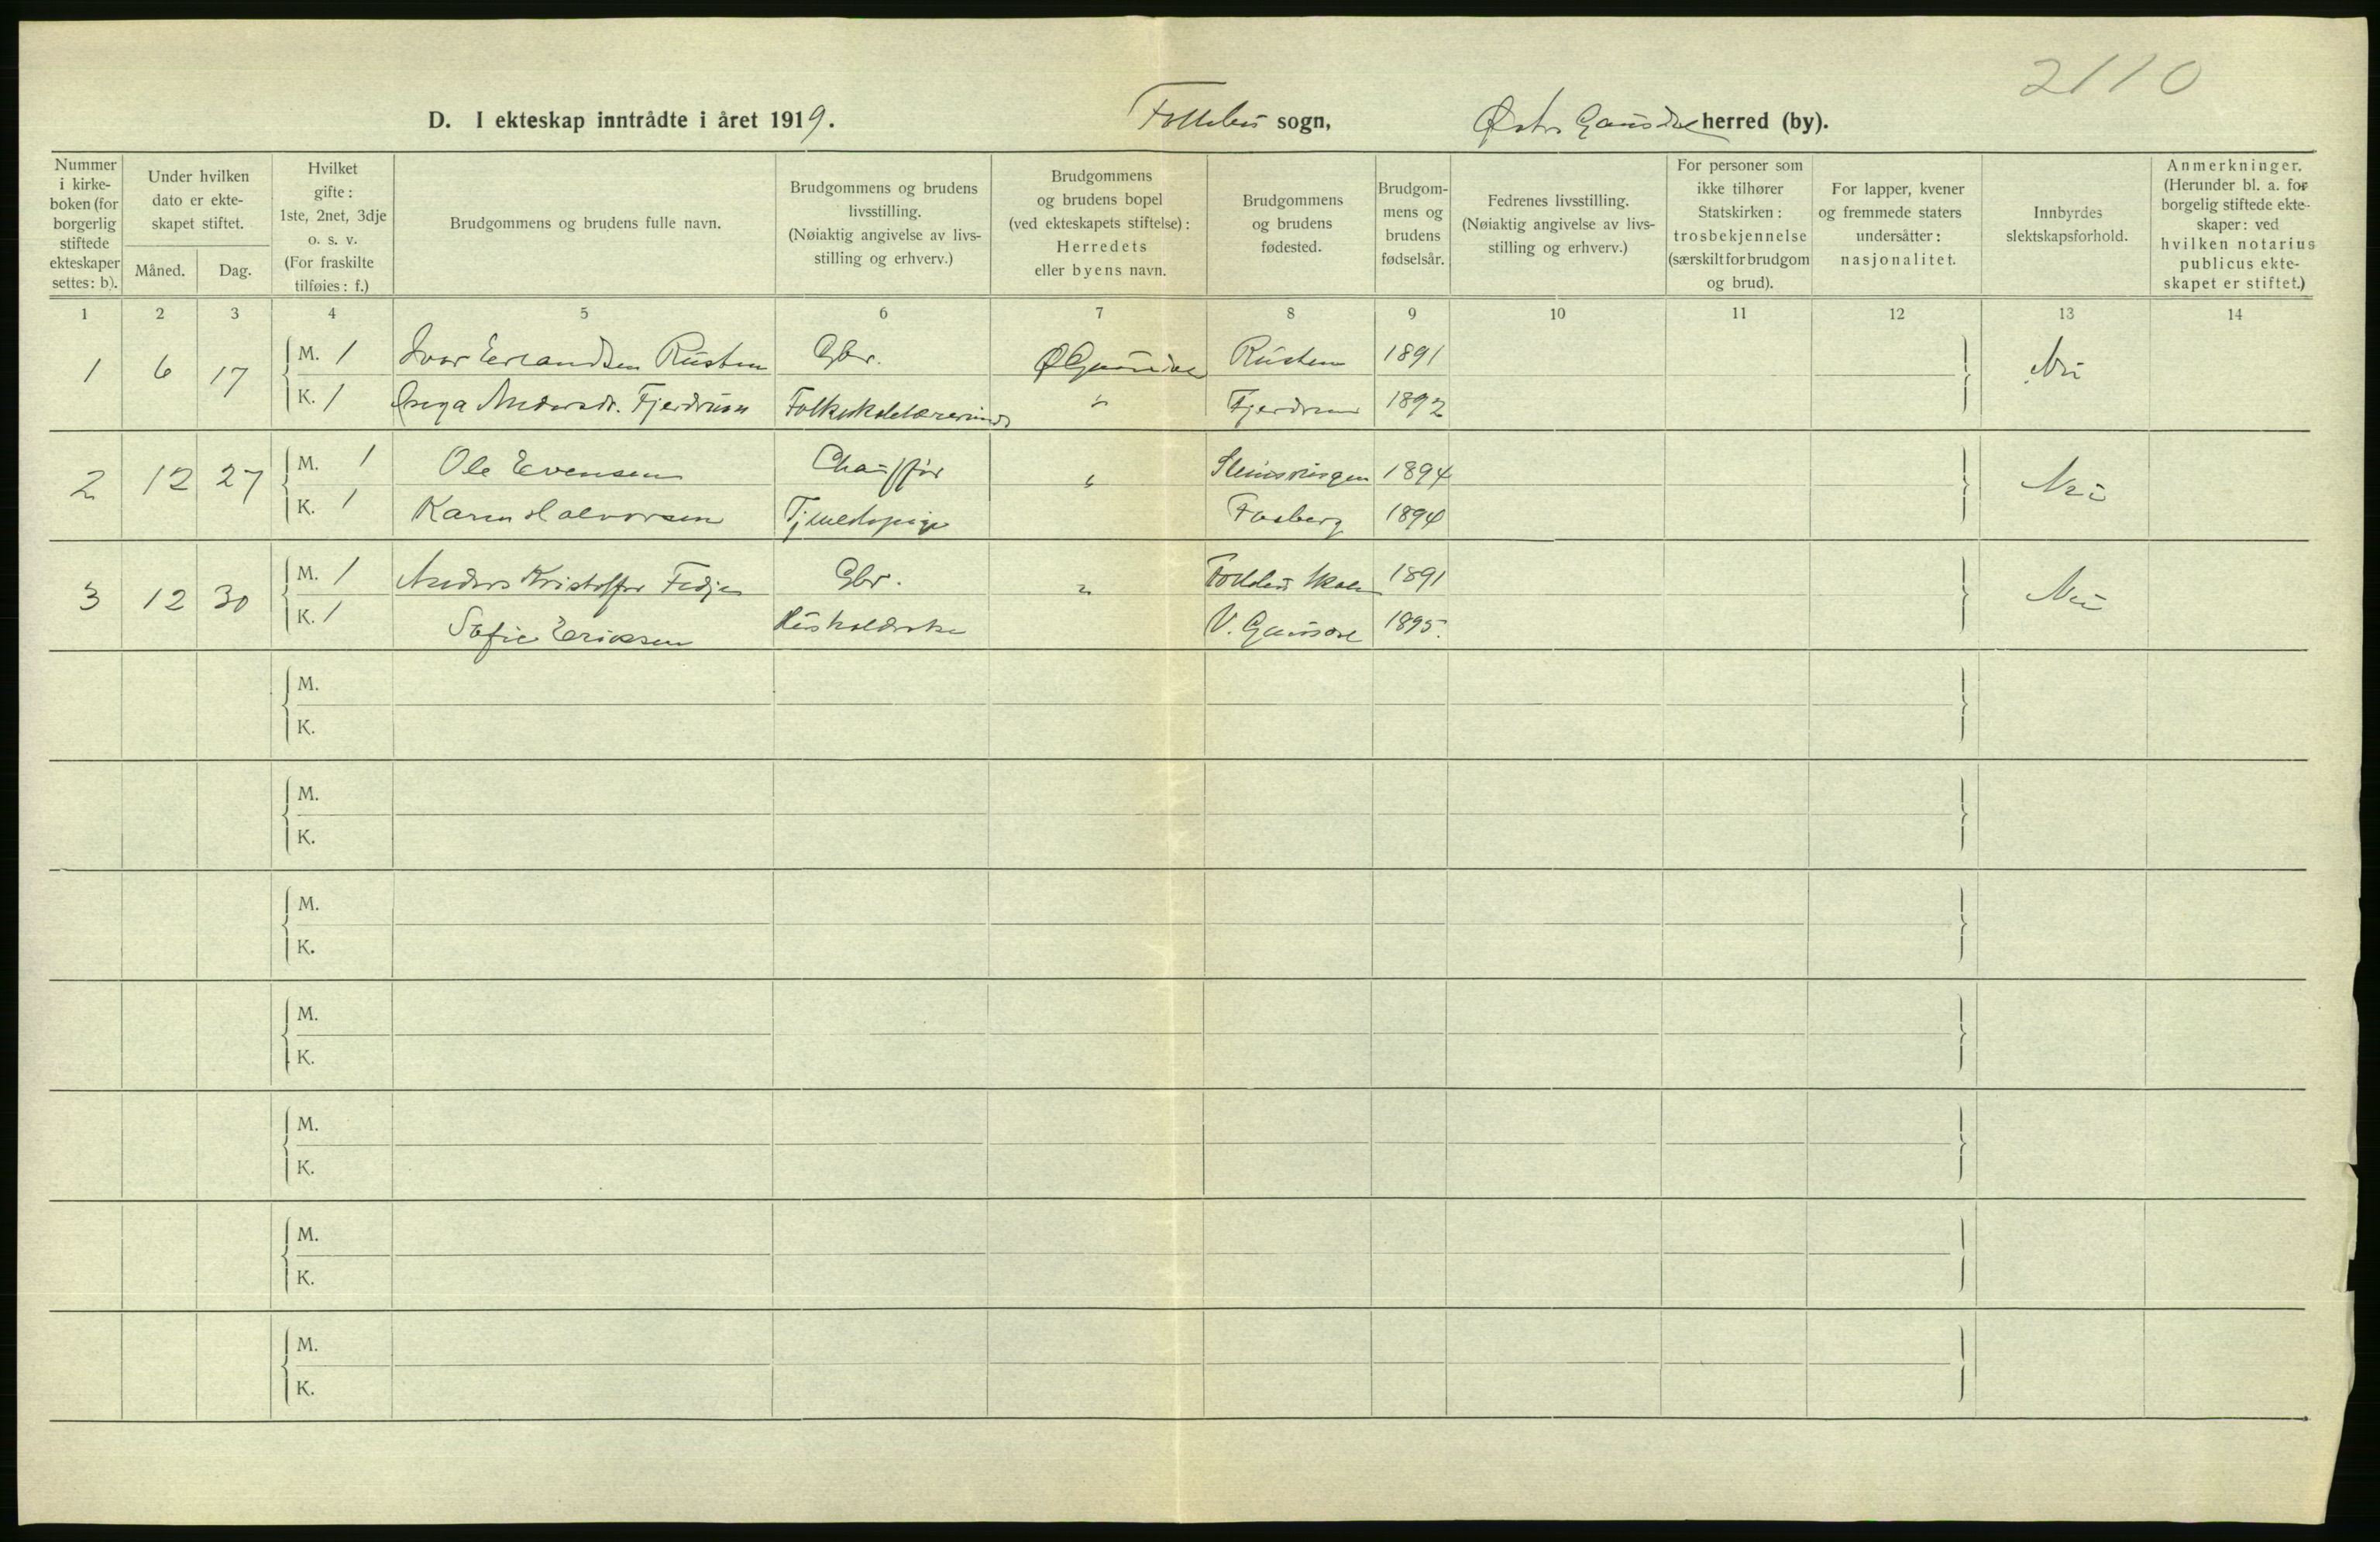 2110
D. I ekteskap inntrådte i året 1919. Follebu sogn, Østre Gausdal herred (by).
Nummer i kirke-boken (for borgerlig stiftede ekteskaper settes: b).
Under hvilken dato er ekte-skapet stiftet.
Måned.
Dag.
Hvilket gifte: 1ste, 2net, 3dje o. s. v. (For fraskilte tilføies: f.)
Brudgommens og brudens fulle navn.
Brudgommens og brudens livsstilling. (Nøiaktig angivelse av livs-stilling og erhverv.)
Brudgommens og brudens bopel (ved ekteskapets stiftelse): Herredets eller byens navn.
Brudgommens og brudens fødested.
Brudgom-mens og brudens fødselsår.
Fedrenes livsstilling. (Nøiaktig angivelse av livs-stilling og erhverv.)
For personer som ikke tilhører Statskirken: trosbekjennelse (særskilt for brudgom og brud).
For lapper, kvener og fremmede staters undersåtter: nasjonalitet.
Innbyrdes slektskapsforhold.
Anmerkninger. (Herunder bl. a. for borgelig stiftede ekte-skaper: ved hvilken notarius publicus ekte-skapet er stiftet.)
1 2 3 4 5 6 7 8 9 10 11 12 13 14
1 6 17 M. 1 Ivar Erlandsen Rusten Gbr. Ø Gausdal Rusten 1891 Nei
K. 1 Inga Andersdt. Fjerdrum Folkeskolelærerinde " Fjerdrum 1892
2 12 27 M. 1 Ole Evensen Chauffør " 1894 Nei
K. 1 Karen Halvorsen Tjenestepige Fosberg 1894
3 12 30 M. 1 Anders Kristoffer Fedje Gbr. " Follebu skole 1891 Nei
K. 1 Sofie Eriksen Husholderske V. Gausdal 1895.
M.
K.
M.
K.
M.
K.
M.
K.
M.
K.
M.
K.
M.
K.